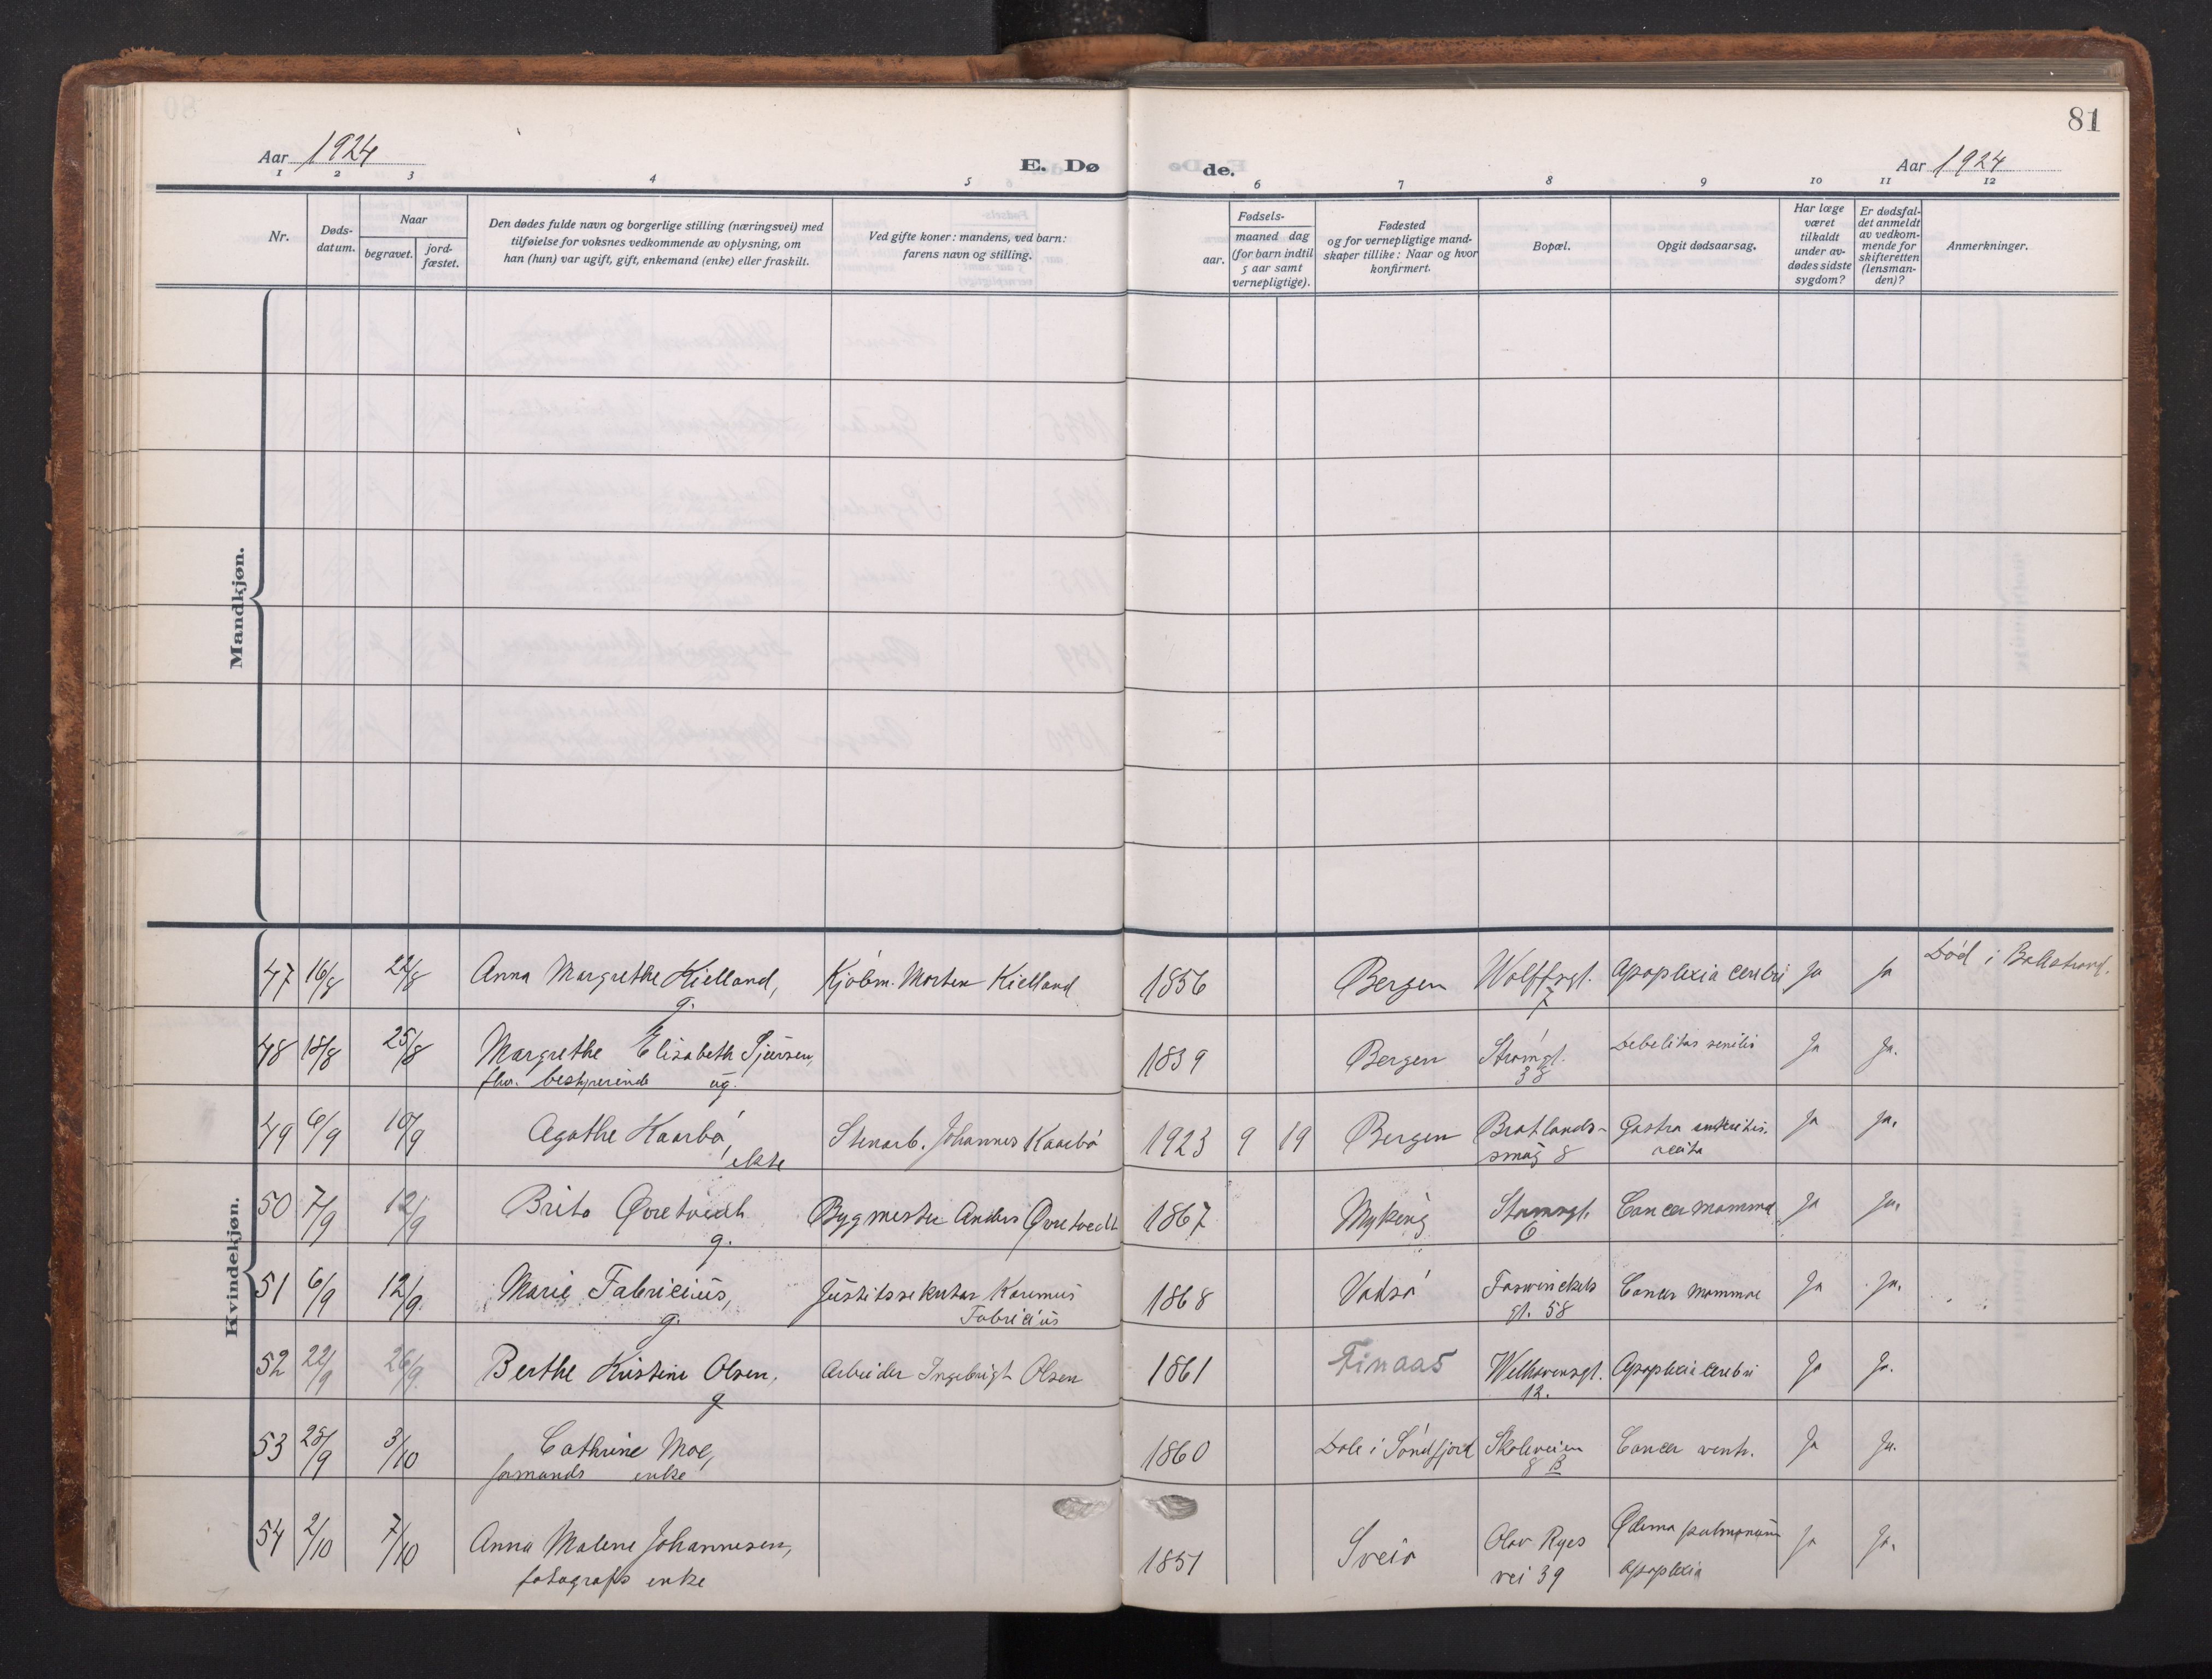 81
Aar 1924
E. Døde.
Aar 1924
1 2 3 4 5 6 7 8 9 10 11 12
Nr.
Døds-
datum.
Naar
begravet.
jord-
fæstet.
Den dødes fulde navn og borgerlige stilling (næringsvei) med
tilføielse for voksnes vedkommende av oplysning, om
han (hun) var ugift, gift, enkemand (enke) eller fraskilt.
Ved gifte koner: mandens, ved barn:
farens navn og stilling.
Fødsels-
aar.
maaned dag
(for barn indtil
5 aar samt
vernepligtige).
Fødested
og for vernepligtige mand-
skaper tillike: Naar og hvor
konfirmert.
Bopæl.
Opgit dødsaarsag.
Har læge
været
tilkaldt
under av-
dødes sidste
sygdom?
Er dødsfal-
det anmeldt
av vedkom-
mende for
skifteretten
(lensman-
den)?
Anmerkninger.
Mandkjøn.
Kvindekjøn.
47 16/8 22/8 Anna Margrethe Kielland, Kjöbm. Morten Kielland 1856 Bergen Wolffsgt. Apoplexia cerebri Ja Ja Död i Balestrand.
g. 7
48 18/8 25/8 Margrethe Elisabeth 1839 Bergen Strömgt. Debelitas senilis Ja Ja.
fhv. bestyrerinde ug. 38
49 6/9 10/9 Agathe Kaarbö, Stenarb. Johannes Kaarbö 1923 9 19 Bergen Bratlands- Gastro enteritis Ja Ja.
ekte smug 8
50 7/9 12/9 Brita Øvretvedt Bygmester Anders Øvretvedt 1867 Myking Strömgt. Cancer mammae Ja Ja.
g. 6
51 6/9 12/9 Marie Fabricius, Justitssekretær Fabricius 1868 Vadsö Foswinckels Cancer mammae Ja Ja.
g. gt. 58
52 22/9 26/9 Berthe Kristine Olsen, Arbeider Ingebrigt Olsen 1861 Finaas Welhavensgt. Apoplexia cerebri Ja Ja.
g 12.
53 28/9 3/10 Cathrine Moe, 1860 Dale i Söndfjord Skoleveien Cancer ventr. Ja Ja.
formands enke 8 B
54 2/10 7/10 Anna Malene Johannesen, 1851 Sveio Olav Ryes Ødema pulmonum Ja Ja.
fotografs enke vei 39 Apoplexia